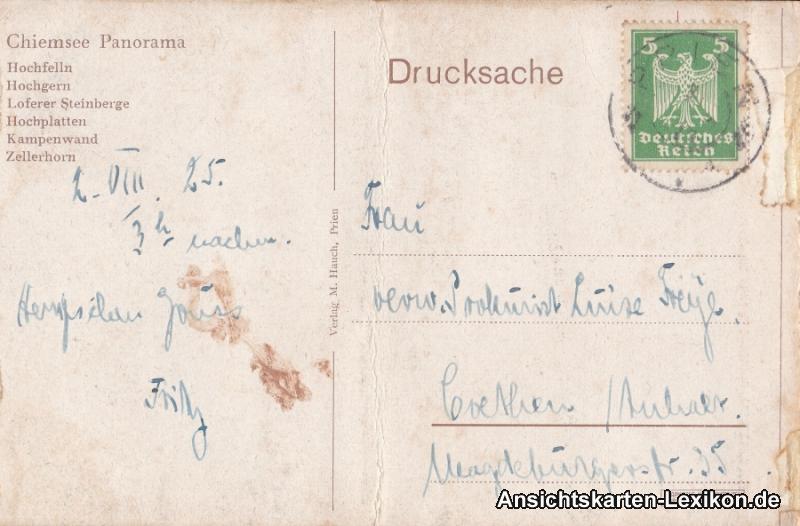 Chiemsee Panorama
Hochfelln
Hochgern
Loferer Steinberge
Hochplatten
Kampenwand
Zellerhorn
2. VIII. 25.
3h nachm.
Gruss
Fritz
Verlag M. Hauch, Prien
Drucksache
5 5
Deutsches
Reich
Frau
verw. Prokurist Luise
Coethen / Anhalt.
Magdeburgerstr. 35
Ansichtskarten-Lexikon.de